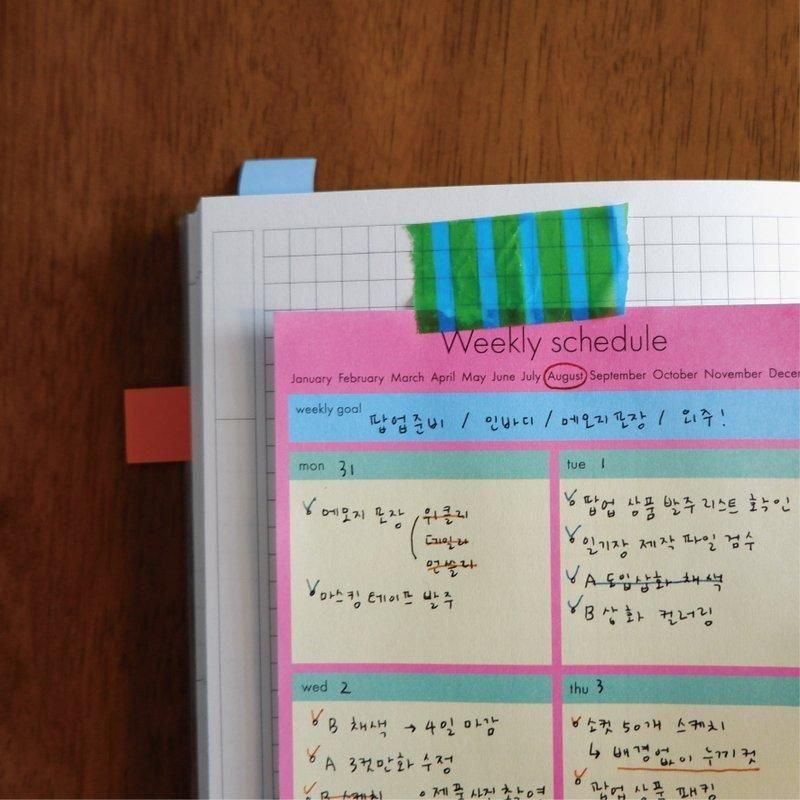 Weekly schedule
January February March April May June July August September October November
weekly goal 팝업준비 / 인바디 / 메모지포장 / 외주!
mon 31
메모지 포장 위클리
데일리
먼슬리
마스킹 테이프 발주
tue 1
팝업 상품 발주 리스트 확인
일기장 제작 파일 검수
A 도입삽화 채색
B 삽화 컬러링
wed 2
B 채색 → 4일 마감
A 3컷만화 수정
B 스케치 제품사진촬영
thu 3
소컷 50개 스케치
↳ 배경없이 누끼컷
팝업 상품 패킹